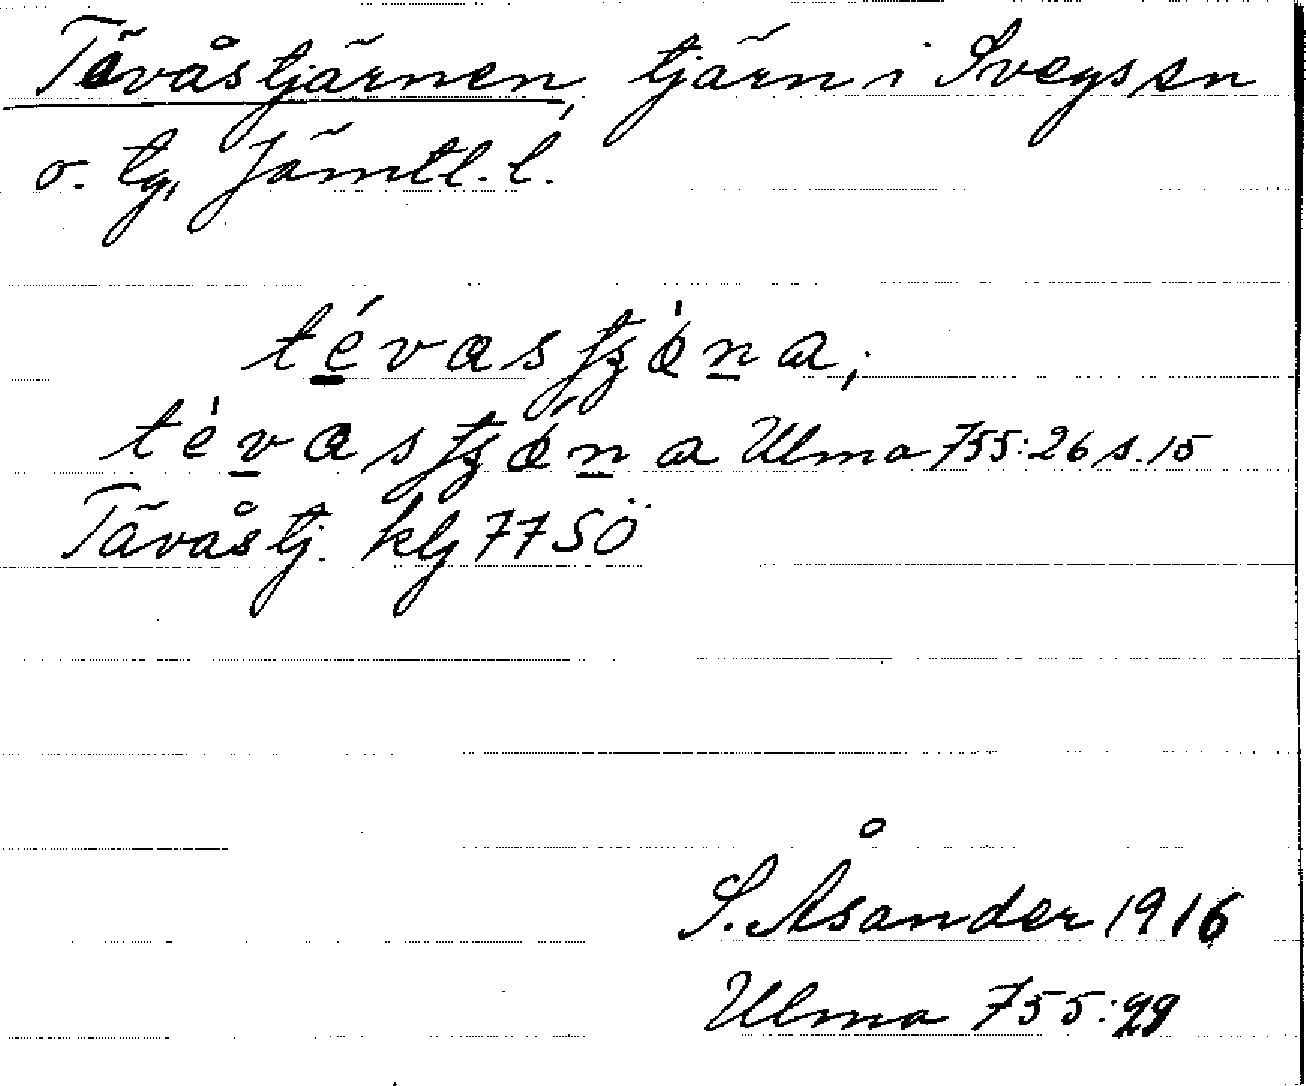 Tävåstjärnen, tjärn i Svegs sn
o. tg, Jämtl. l.
tévastʒȯna;
tėvastʒȯ́na Ulma 755:26 s. 15
Tävåstj. klj 77 SÖ
S. Åsander 1916
Ulma 755: